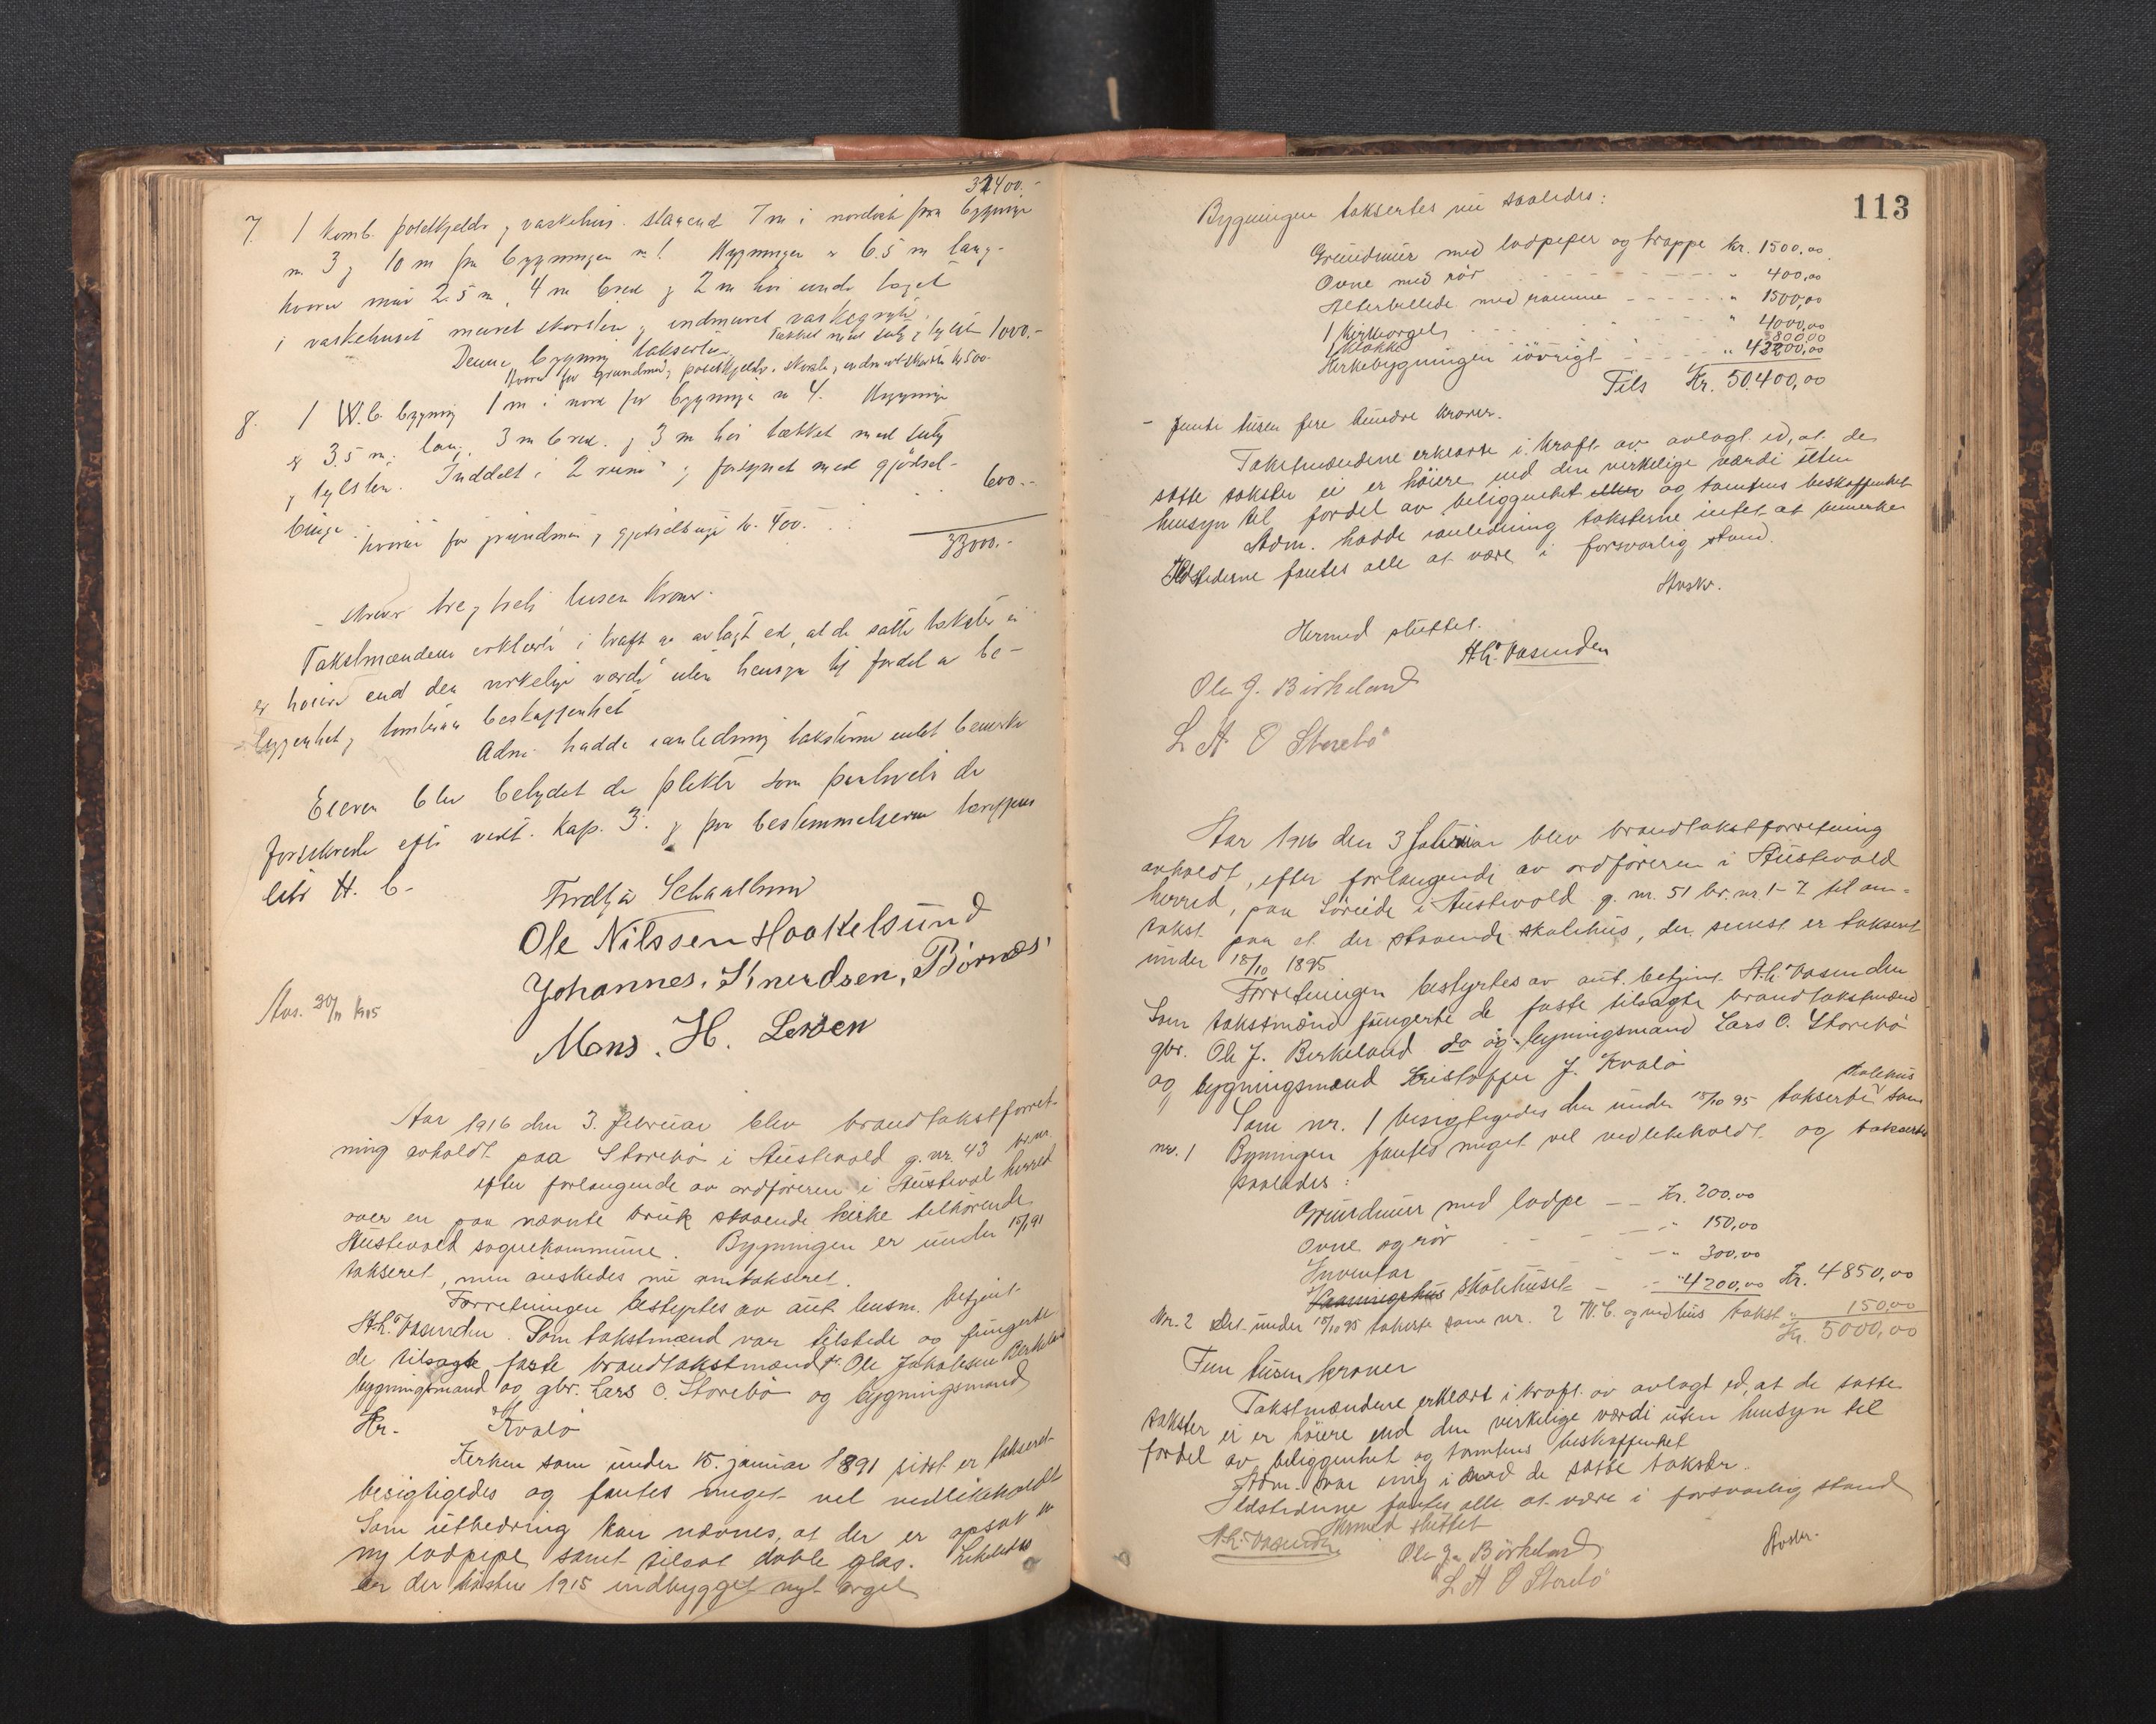 31400.-
7. 1 komb. potetkjelder & vaskehus staaende 7 m i nordost fra bygning
nr 3 & 10 m fra bygningen nr 1. Bygningen er 6.5 m lang
hvorav mur 2.5 m, 4 m bred & 2 m høi under taget
i vaskehuset muret skorsten & indmuret vaskegryte.
Denne bygning takseres 1000.-
Hvorav for grundmur, potetkjelder, skorsten, kr 500
8. 1 W.C. bygning 1 m i nord for bygning nr 4. Bygningen
er 3.5 m. lang, 3 m bred & 3 m høi tækket med sutag
& teglsten. Inddelt i 2 rum & forsynet med gjødsel-
binge 600.-
hvorav for grundmur & gjødselbinge kr. 400.
33000.-
- skriver tre & treti tusen Kroner.
Takstmændene erklærte i kraft av avlagt ed, at de satte takster ei
er høiere end den virkelige værdi uten hensyn til fordel av be-
liggenhet & tomtens beskaffenhet
Adm. hadde i anledning taksterne intet bemerke
Eieren blev betydet de plikter som paahviler de
forsikrede efter vedt. Kap. 3. & paa bestemmelserne tariffens
litr H. b-
Fredtjov Schaathun
Ole Nilssen Haakelsund
Johannes Knudsen, Børnæs
Mons. H. Lerøen
Avs. 30/11 1915
Aar 1916 den 3. februar blev brandtakstforret-
ning avholdt paa Storebø i Austevold g.nr. 43 br.nr.
efter forlangende av ordføreren i Austevol herred
over en paa nævnte bruk staaende kirke tilhørende
Austevold sognekommune. Bygningen er under 15/1 91
takseret, men ønskedes nu omtakseret.
Forretningen bestyrtes av aut. lensm. betjent
A.G. Vasenden. Som takstmænd var tilstede og fungerte
de tilsagte faste brandtakstmænd Ole Jakobsen Birkeland
bygningsmand og gbr. Lars O. Storebø og bygningsmand
Kr. Kvalø
Kirken som under 15. januar 1891 sidst er takseret
besigtigedes og fantes meget vel vedlikeholdt
Som utbedring kan nævnes, at der er opsat en
ny ladpipe samt tilsat doble glas. Likeledes
er der høsten 1915 indbygget nyt orgel
113
Bygningen taksertes nu saaledes:
Grundmur med ladpiper og trappe kr. 1500,00
Ovne med rør " 400,00
Alterbillede med ramme " 1500,00
1 kirkeorgel " 4000,00
1 klokke 800,00
Kirkebygningen iøvrigt " 42200,00
Tils Kr. 50400,00
- femti tusen fire hundre kroner.
Takstmændene erklærte i kraft av avlagt ed, at de
satte takster ei er høiere end den virkelige værdi uten
hensyn til fordel av beliggenhet eller og tomtens beskaffenhet
Adm. hadde i anledning taksterne intet at bemerke
Ildstederne fantes alle at være i forsvarlig stand.
Avskr.
Hermed sluttet.
A.G. Vasenden
Ole J. Birkeland
L A O Storebø
Aar 1916 den 3 februar blev brandtakstforretning
avholdt, efter forlangende av ordføreren i Austevold
herred, paa Søreide i Austevold g. nr. 51 br. nr. 1-7 til om-
takst paa et der staaende skolehus, der senest er takseret
under 18/10 1895.
Forretningen bestyrtes av aut. betjent A.G. Vasenden
Som takstmænd fungerte de faste tilsagte brandtakstmænd
gbr. Ole J. Birkeland do og bygningsmand Lars O. Storebø
og bygningsmand Kristoffer J. Kvalø
Som nr. 1 besigtigedes den under 18/10 95 takserte skolehus som
nr. 1 Bygningen fantes meget vel vedlikeholdt og taksertes
saaledes:
Grundmur med ladpipe -- Kr. 200,00
Ovne og rør " 150,00
Inventar " 300,00
Vaaningshus skolehuset " 4200,00 Kr. 4850,00
Nr. 2 Det under 18/10 95 takserte som nr. 2 W.C. og vedhus takst " 150,00
Kr. 5000,00
Fem tusen kroner
Takstmændene erklærte i kraft av avlagt ed, at de satte
takster ei er høiere end den virkelige værdi uten hensyn til
fordel av beliggenhet og tomtens beskaffenhet
Adm. var enig i med de satte takster.
Ildstederne fantes alle at være i forsvarlig stand
Hermed sluttet
A.G. Vasenden
Ole J. Birkeland
Avskr.
L A O Storebø